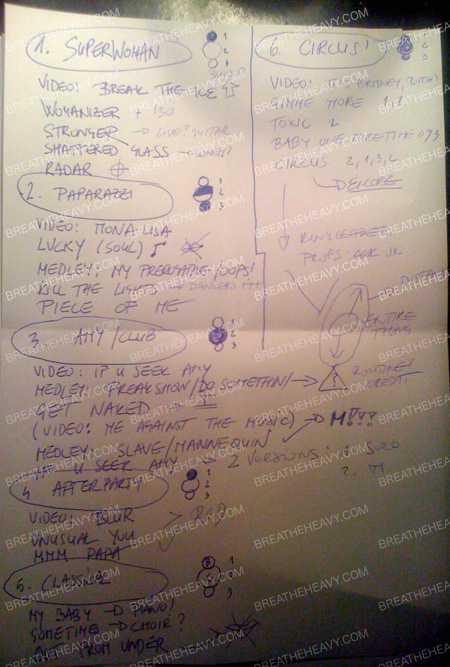 1. SUPERWOMAN
VIDEO: BREAK THE ICE
WOMANIZER + 130
STRONGER → LIVE? GUITAR
SHATTERED GLASS
RADAR
2. PAPARAZZI
VIDEO: MONA LISA
LUCKY (SOUL)
MEDLEY: MY PREROGATIVE/OOPS!
KILL THE LIGHTS → DANCERS
PIECE OF ME
3. AMY/CLUB
VIDEO: IF U SEEK AMY
MEDLEY: FREAKSHOW/DO SOMETHIN' →
GET NAKED
(VIDEO: ME AGAINST THE MUSIC) → M!!!
MEDLEY: SLAVE/MANNEQUIN
IF U SEEK AMY → 2 VERSIONS: 1. SOLO
2. M
4. AFTERPARTY
VIDEO: BLUR
UNUSUAL YOU
MMM PAPA
5.
MY BABY → PIANO!
SOMETIME → CHOIR?
OUT FROM UNDER
6. CIRCUS!
VIDEO: IT'S BRITNEY, BITCH!
GIMME MORE
TOXIC 2
BABY ONE MORE TIME
CIRCUS 2, 1, 3, 2
ENTIRE
THING
BREATHEHEAVY.COM